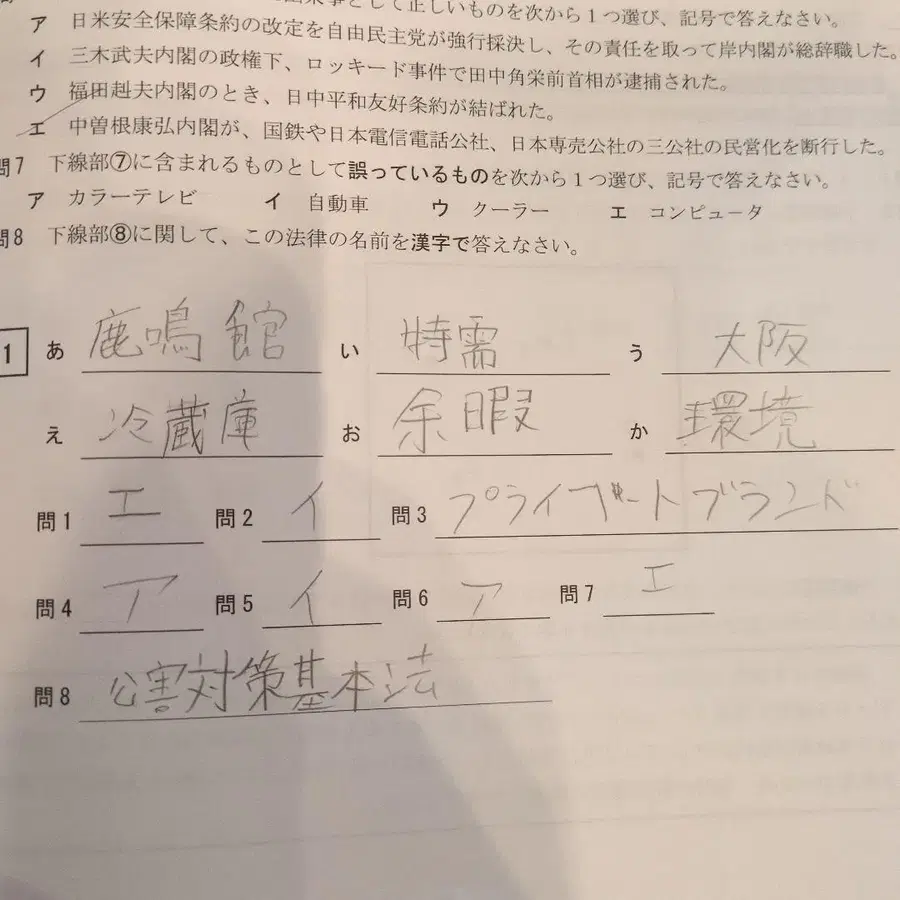 出来事として正しいものを次から1つ選び、記号で答えなさい。
ア 日米安全保障条約の改定を自由民主党が強行採決し、その責任を取って岸内閣が総辞職した。
イ 三木武夫内閣の政権下、ロッキード事件で田中角栄前首相が逮捕された。
ウ 福田赳夫内閣のとき、日中平和友好条約が結ばれた。
エ 中曽根康弘内閣が、国鉄や日本電信電話公社、日本専売公社の三公社の民営化を断行した。
問7 下線部⑦に含まれるものとして誤っているものを次から1つ選び、記号で答えなさい。
ア カラーテレビ イ 自動車 ウ クーラー エ コンピュータ
問8 下線部⑧に関して、この法律の名前を漢字で答えなさい。
1 あ 鹿鳴館 い 特需 う 大阪
え 冷蔵庫 お 余暇 か 環境
問1 エ 問2 イ 問3 プライベートブランド
問4 ア 問5 イ 問6 ア 問7 エ
問8 公害対策基本法